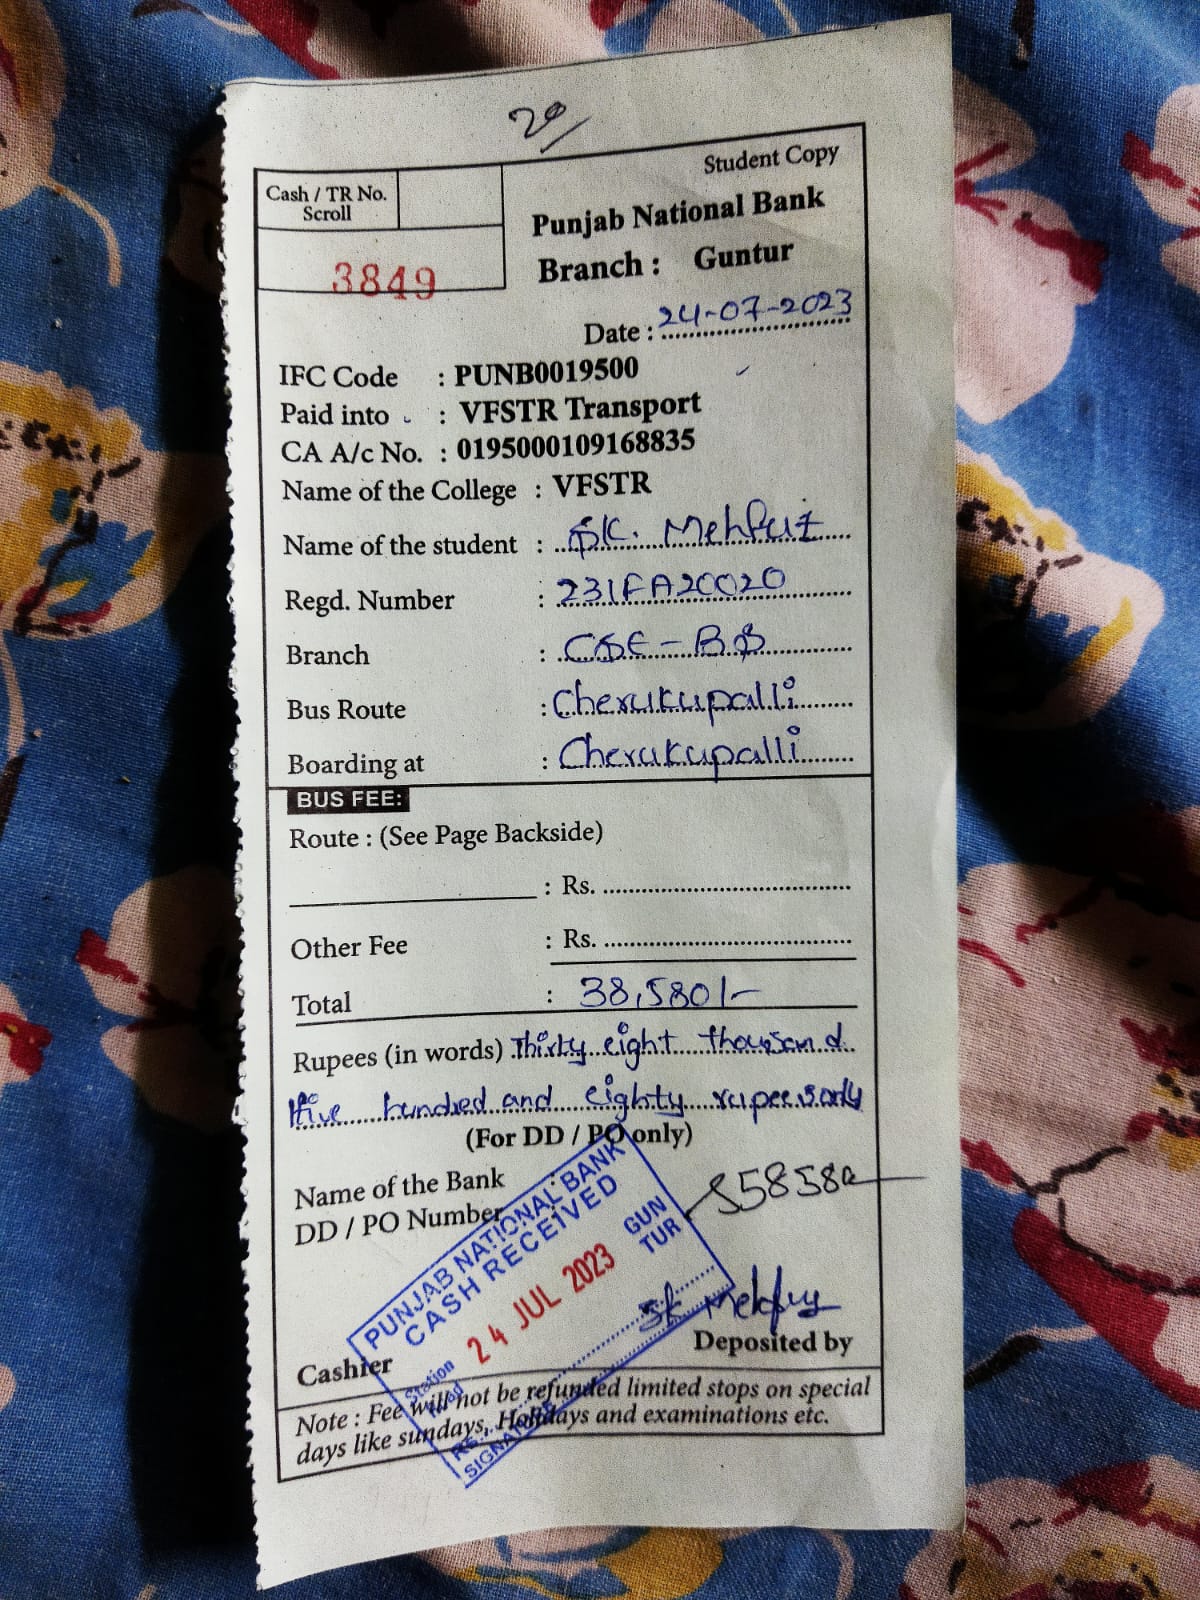 20/
Student Copy
Cash / TR No.
Scroll
Punjab National Bank
Branch : Guntur
3849
Date : 24-07-2023
IFC Code : PUNB0019500
Paid into : VFSTR Transport
CA A/c No. : 0195000109168835
Name of the College : VFSTR
Name of the student : SK. Mehfuz
Regd. Number : 231FA20020
Branch : CSE - BS
Bus Route : Cherukupalli
Boarding at : Cherukupalli
BUS FEE:
Route : (See Page Backside)
: Rs.
Other Fee : Rs.
Total : 38,580/-
Rupees (in words) Thirty eight thousand
five hundred and eighty rupees only
(For DD / PO only)
Name of the Bank
DD / PO Number
PUNJAB NATIONAL BANK
CASH RECEIVED
GUN
TUR
24 JUL 2023
Station
Road
RS.
SIGNATURE
Sk Mehfuz
Cashier
Deposited by
Note : Fee will not be refunded limited stops on special
days like sundays, Holidays and examinations etc.